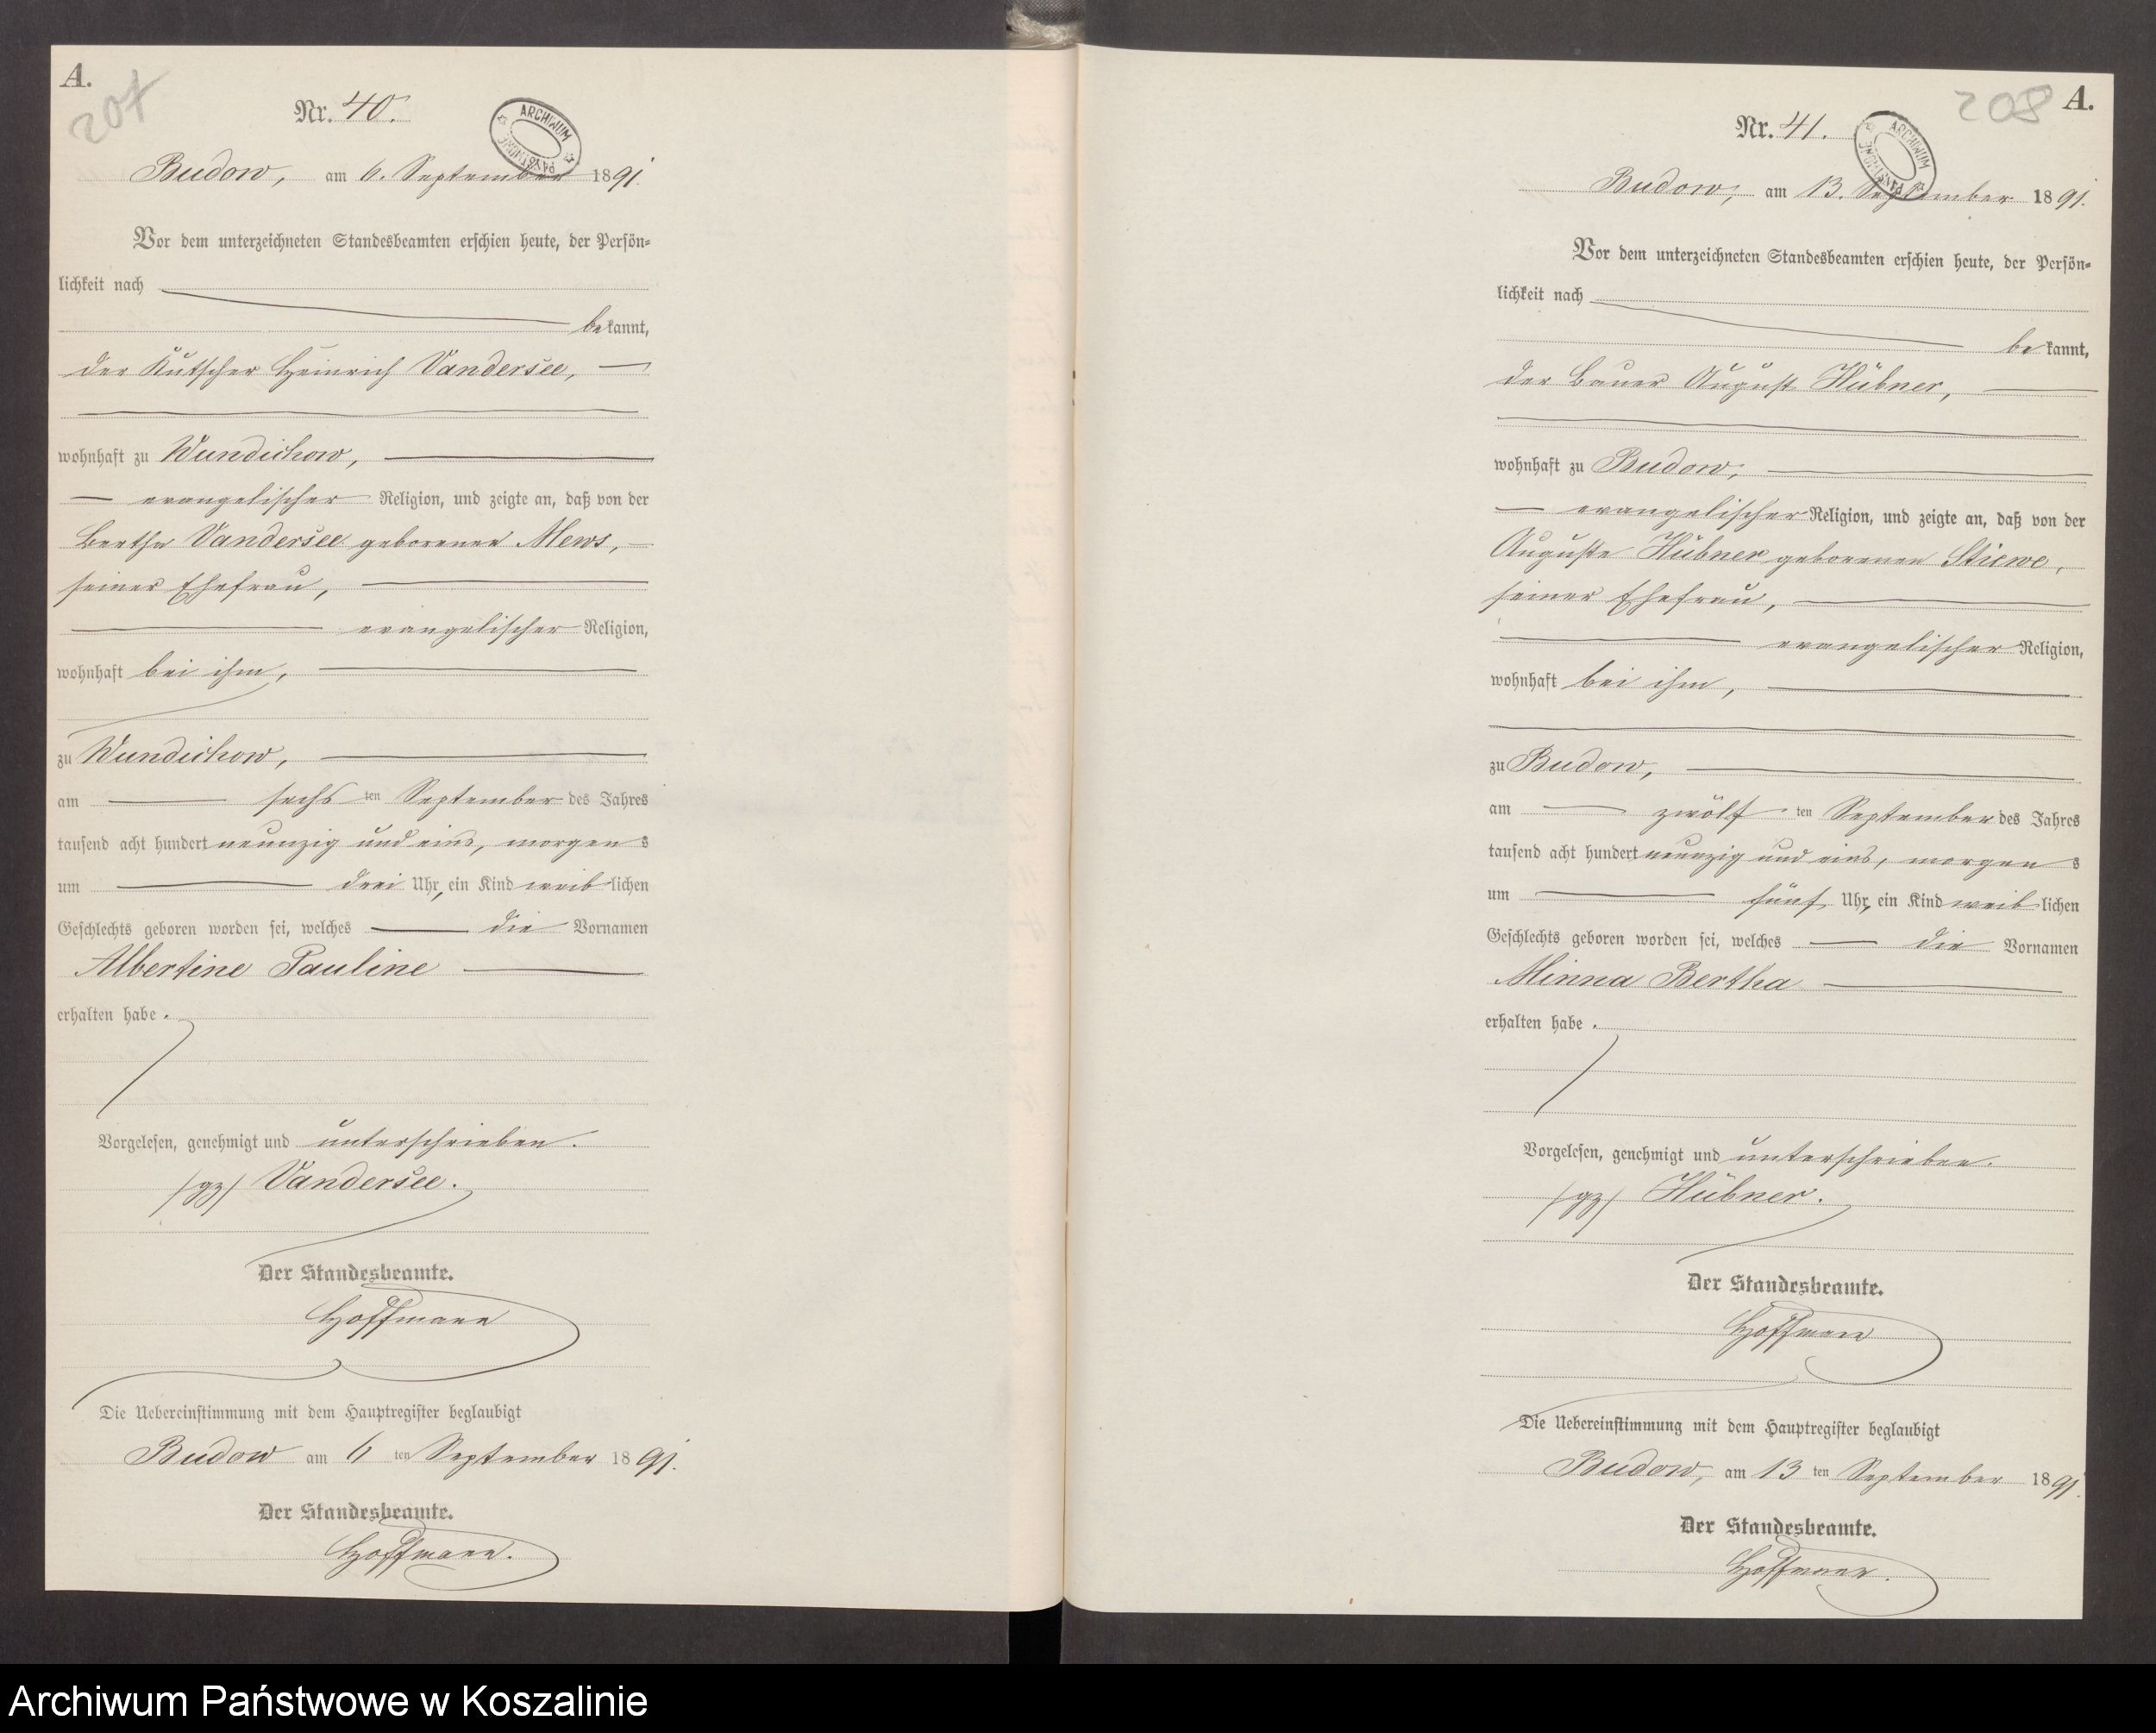 A.
207
Nr. 40.
ARCHIWUM PAŃSTWOWE
Budow, am 6. September 1891.
Vor dem unterzeichneten Standesbeamten erschien heute, der Persön=
lichkeit nach
bekannt,
der Kutscher Heinrich Vandersee,
wohnhaft zu Wundichow,
evangelischer Religion, und zeigte an, daß von der
Bertha Vandersee geborenen Mews,
seiner Ehefrau,
evangelischer Religion,
wohnhaft bei ihm,
zu Wundichow,
am sechs ten September des Jahres
tausend acht hundert neunzig und eins, morgens
um drei Uhr, ein Kind weiblichen
Geschlechts geboren worden sei, welches die Vornamen
Albertine Pauline
erhalten habe.
Vorgelesen, genehmigt und unterschrieben.
/gz/ Vandersee.
Der Standesbeamte.
Hoffmann
Die Uebereinstimmung mit dem Hauptregister beglaubigt
Budow am 6 ten September 1891.
Der Standesbeamte.
Hoffmann.
208
A.
Nr. 41.
ARCHIWUM PAŃSTWOWE
Budow, am 13. September 1891.
Vor dem unterzeichneten Standesbeamten erschien heute, der Persön=
lichkeit nach
bekannt,
der Bauer August Hübner,
wohnhaft zu Budow,
evangelischer Religion, und zeigte an, daß von der
Auguste Hübner geborenen Stiewe,
seiner Ehefrau,
evangelischer Religion,
wohnhaft bei ihm,
zu Budow,
am zwölf ten September des Jahres
tausend acht hundert neunzig und eins, morgens
um fünf Uhr, ein Kind weiblichen
Geschlechts geboren worden sei, welches die Vornamen
Minna Bertha
erhalten habe.
Vorgelesen, genehmigt und unterschrieben.
/gz/ Hübner.
Der Standesbeamte.
Hoffmann
Die Uebereinstimmung mit dem Hauptregister beglaubigt
Budow, am 13 ten September 1891.
Der Standesbeamte.
Hoffmann.
Archiwum Państwowe w Koszalinie